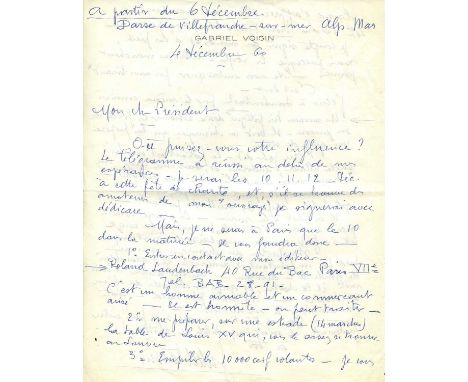 A partir du 6 Décembre.
Darse de Villefranche-sur-mer Alp. Mar
GABRIEL VOISIN
4 Décembre 60
Mon ch Président
Où puisez-vous votre influence?
Le télégramme a réussi au delà de mes
espérances - je serai les 10. 11. 12 - Déc.
à cette fête de charité, et s'il se trouve des
amateurs de mon "ouvrage" je signerai avec
dédicace.
Mais, je ne serai à Paris que le 10
dans la matinée - Il vous faudra donc -
1° Entrer en contact avec mon éditeur -
Roland Laudenbach 40 Rue du Bac Paris VII e
Tel: BAB - 28-91 -
C'est un homme aimable et un commerçant
avisé - Il est honnête - on peut traiter -
2° me préparer, sur une estrade (14 marches)
la table de Louis XV qui,
3° Empiler les 10 000 - Je vous